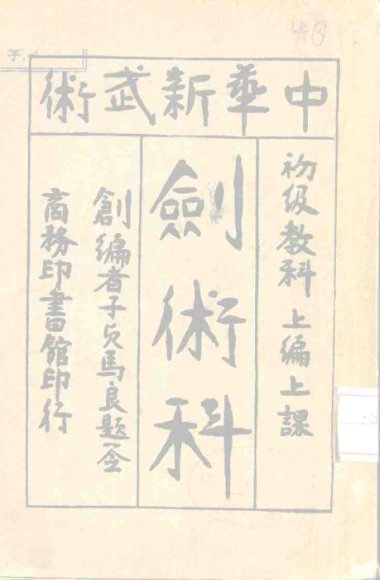 中華新武術
初級教科上編上課
劍術科
創編者子貞馬良題簽
商務印書館印行